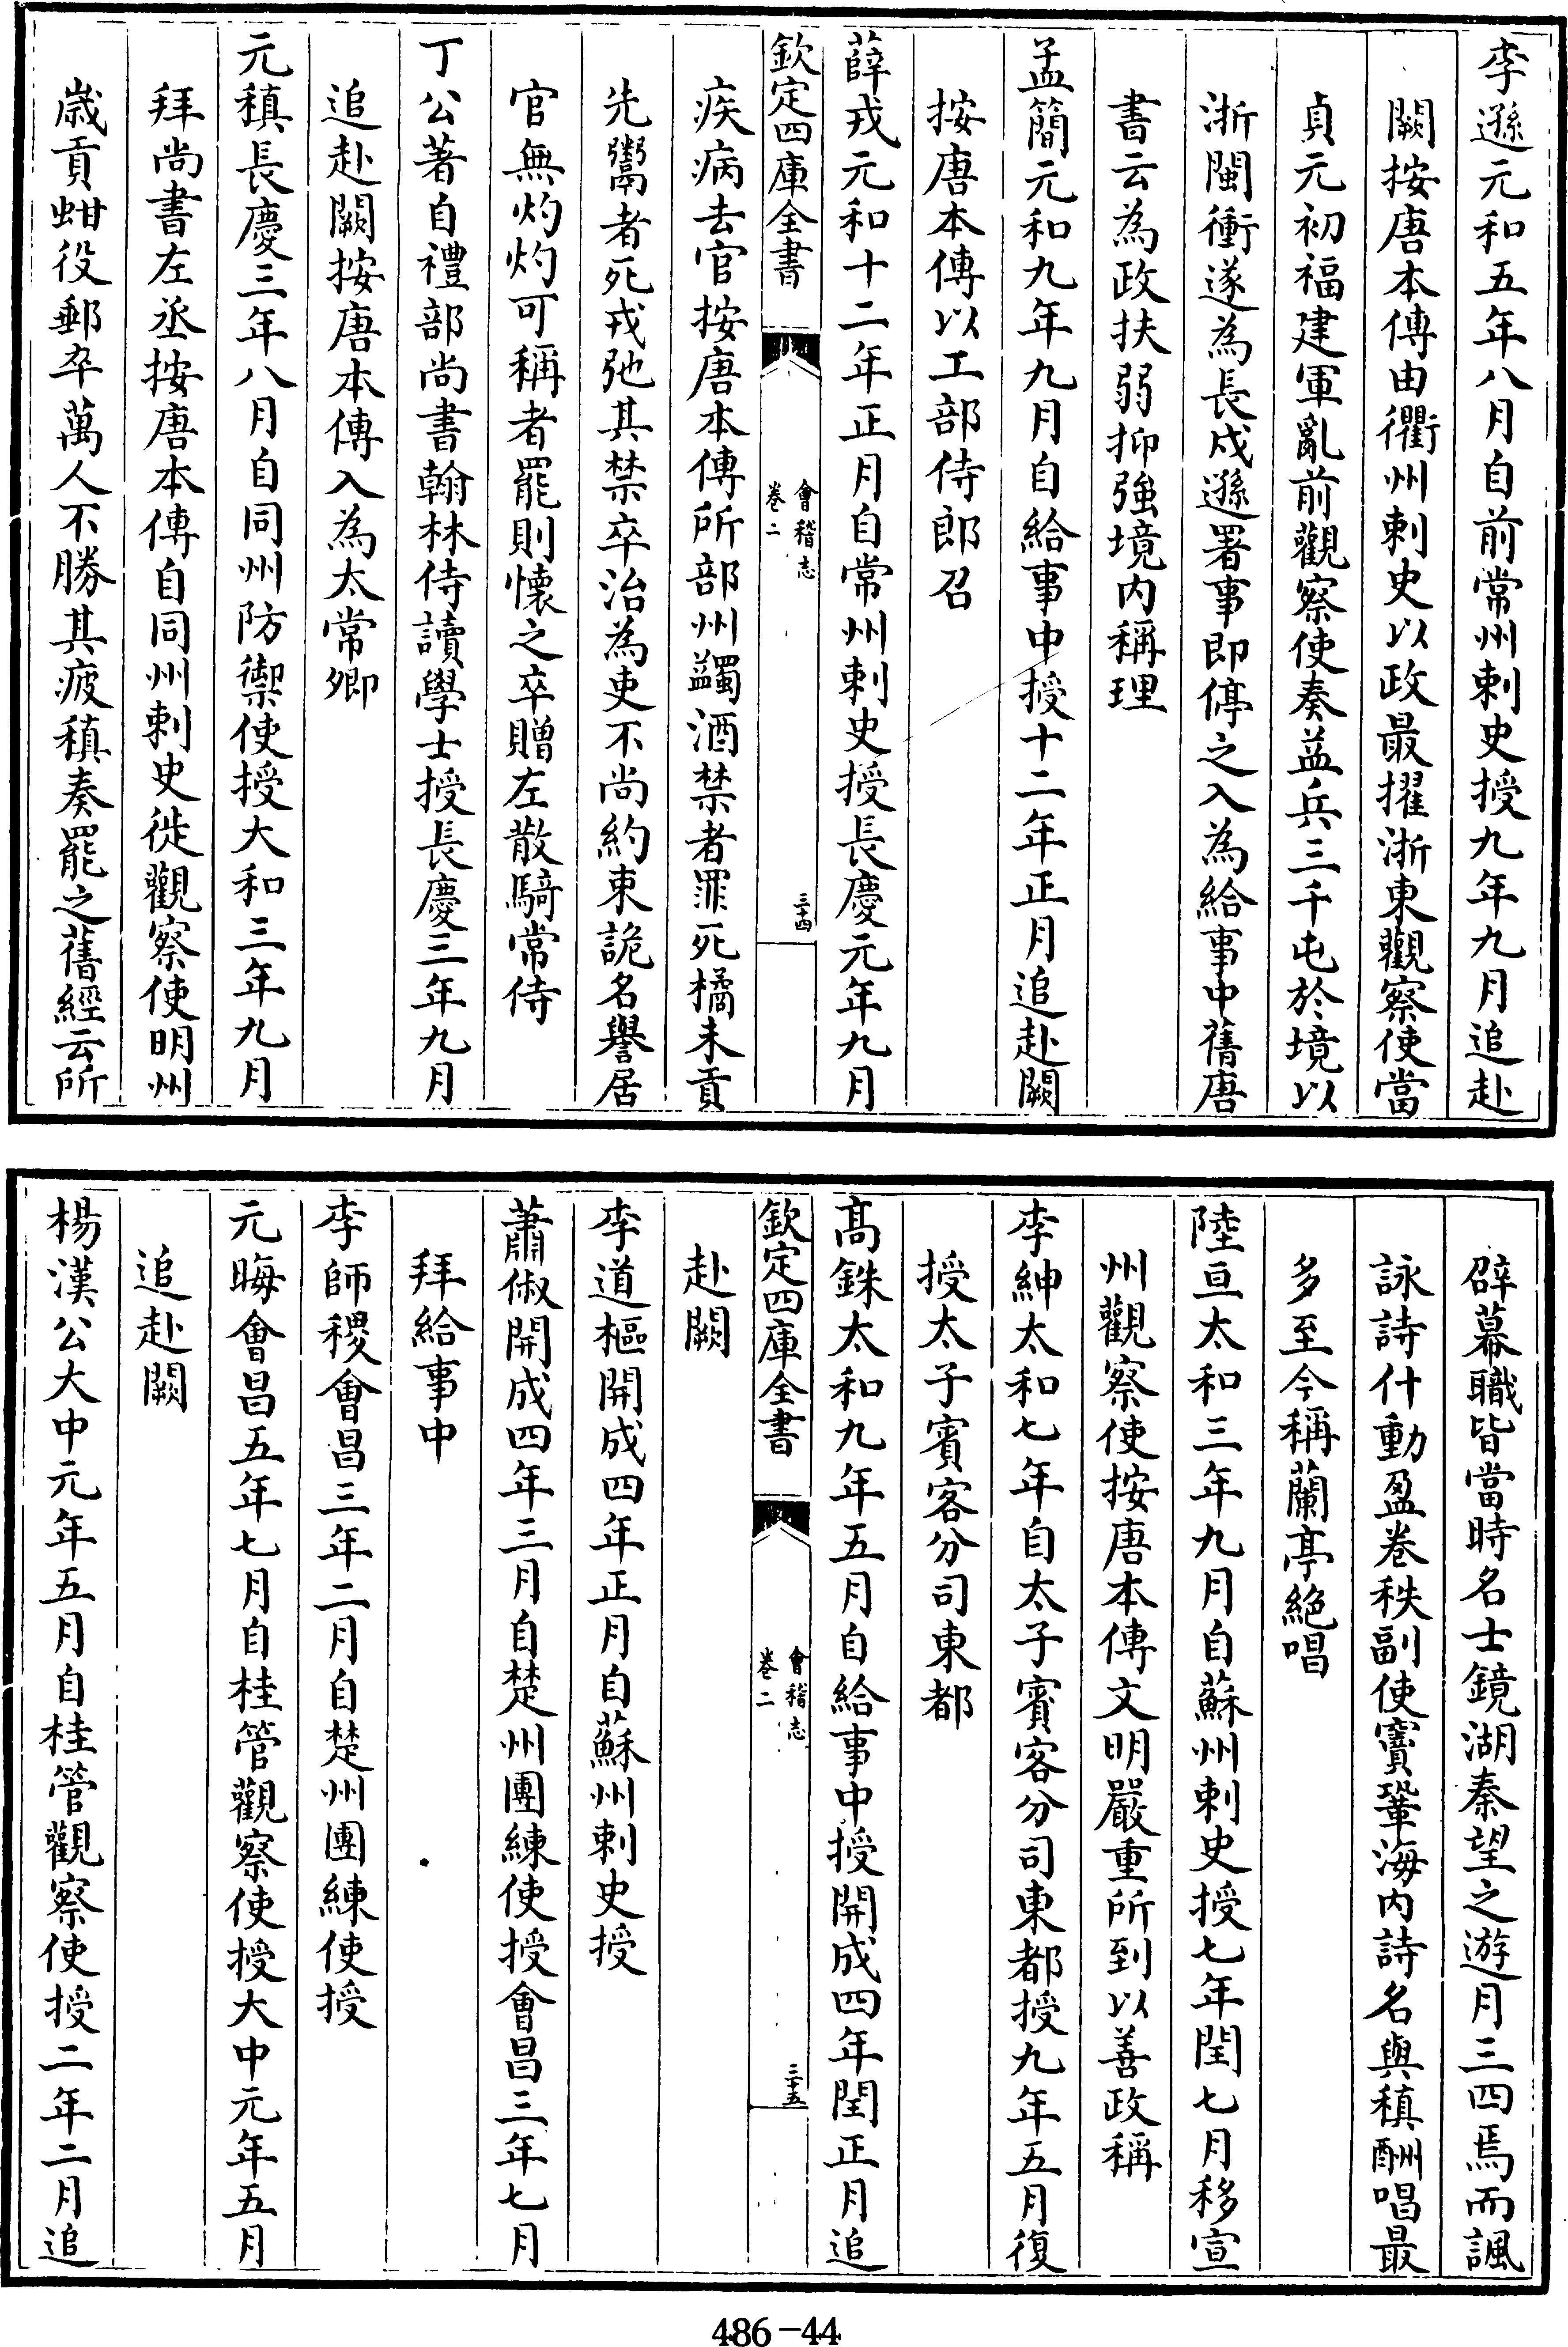 李遜元和五年八月自前常州刺史授九年九月追赴
闕按唐本傳由衢州刺史以政最擢浙東觀察使當
貞元初福建軍亂前觀察使奏益兵三千屯於境以
浙閩衝遂為長戍遜署事即停之入為給事中舊唐
書云為政扶弱抑強境内稱理
孟簡元和九年九月自給事中授十二年正月追赴闕
按唐本傳以工部侍郎召
薛戎元和十二年正月自常州刺史授長慶元年九月
欽定四庫全書
會稽志
卷二
三十四
疾病去官按唐本傳所部州蠲酒禁者罪死橘未貢
先鬻者死戎弛其禁卒治為吏不尚約束詭名譽居
官無灼灼可稱者罷則懷之卒贈左散騎常侍
丁公著自禮部尚書翰林侍讀學士授長慶三年九月
追赴闕按唐本傳入為太常卿
元稹長慶三年八月自同州防禦使授大和三年九月
拜尚書左丞按唐本傳自同州刺史徙觀察使明州
歲貢蚶役郵卒萬人不勝其疲稹奏罷之舊經云所
辟幕職皆當時名士鏡湖秦望之遊月三四焉而諷
詠詩什動盈卷秩副使竇鞏海内詩名與稹酬唱最
多至今稱蘭亭絕唱
陸亘太和三年九月自蘇州刺史授七年閏七月移宣
州觀察使按唐本傳文明嚴重所到以善政稱
李紳太和七年自太子賓客分司東都授九年五月復
授太子賓客分司東都
髙銖太和九年五月自給事中授開成四年閏正月追
欽定四庫全書
會稽志
卷二
三十五
赴闕
李道樞開成四年正月自蘇州刺史授
蕭俶開成四年三月自楚州團練使授會昌三年七月
拜給事中
李師稷會昌三年二月自楚州團練使授
元晦會昌五年七月自桂管觀察使授大中元年五月
追赴闕
楊漢公大中元年五月自桂管觀察使授二年二月追
486-44